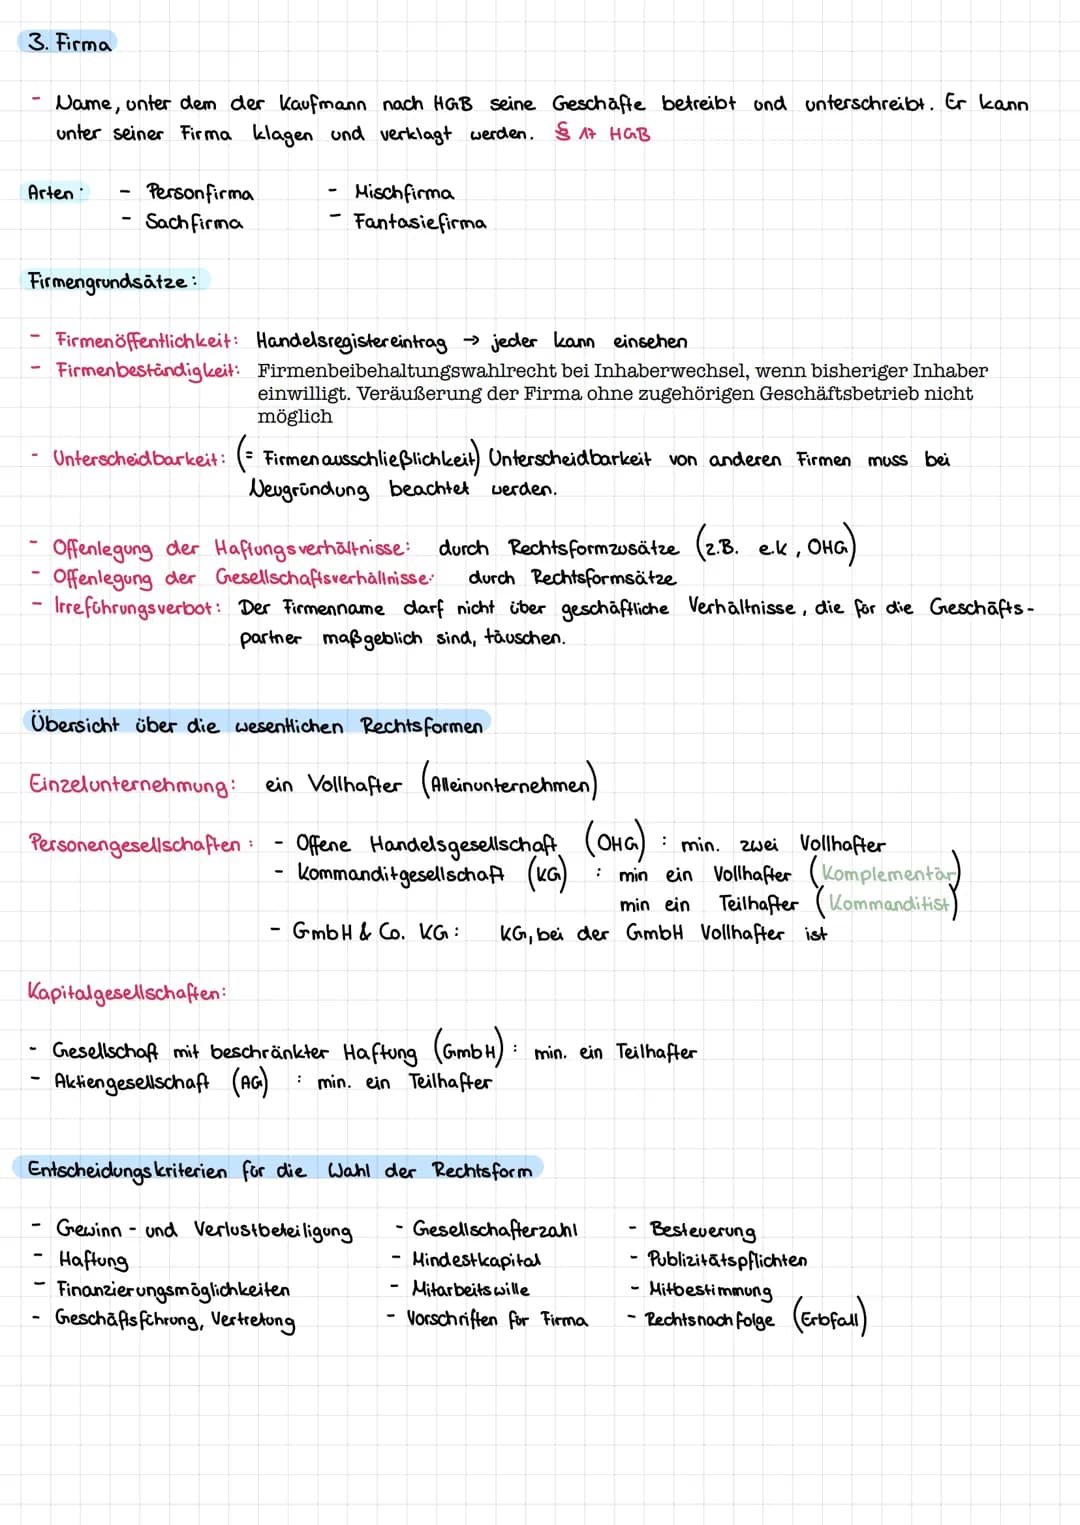 3. Firma
- Name, unter dem der Kaufmann nach HGB seine Geschäfte betreibt und unterschreibt. Er kann
unter seiner Firma klagen und verklagt werden. § 17 HGB
Arten: - Personfirma - Mischfirma
- Sachfirma - Fantasiefirma
Firmengrundsätze:
- Firmenöffentlichkeit: Handelsregistereintrag → jeder kann einsehen
- Firmenbeständigkeit: Firmenbeibehaltungswahlrecht bei Inhaberwechsel, wenn bisheriger Inhaber
einwilligt. Veräußerung der Firma ohne zugehörigen Geschäftsbetrieb nicht
möglich
- Unterscheidbarkeit: (= Firmenausschließlichkeit) Unterscheidbarkeit von anderen Firmen muss bei
Neugründung beachtet werden.
- Offenlegung der Haftungsverhältnisse: durch Rechtsformzusätze (z.B. e.k, OHG)
- Offenlegung der Gesellschaftsverhältnisse: durch Rechtsformsätze
- Irreführungsverbot: Der Firmenname darf nicht über geschäftliche Verhältnisse, die für die Geschäfts-
partner maßgeblich sind, täuschen.
Übersicht über die wesentlichen Rechtsformen
Einzelunternehmung: ein Vollhafter (Alleinunternehmen)
Personengesellschaften: - Offene Handelsgesellschaft (OHG) : min. zwei Vollhafter
- Kommanditgesellschaft (KG) : min ein Vollhafter (Komplementär)
min ein Teilhafter (Kommanditist)
- GmbH & Co. KG: KG, bei der GmbH Vollhafter ist
Kapitalgesellschaften:
- Gesellschaft mit beschränkter Haftung (GmbH) : min. ein Teilhafter
- Aktiengesellschaft (AG) : min. ein Teilhafter
Entscheidungskriterien für die Wahl der Rechtsform
- Gewinn- und Verlustbeteiligung - Gesellschafterzahl - Besteuerung
- Haftung - Mindestkapital - Publizitätspflichten
- Finanzierungsmöglichkeiten - Mitarbeitswille - Mitbestimmung
- Geschäftsführung, Vertretung - Vorschriften für Firma - Rechtsnachfolge (Erbfall)